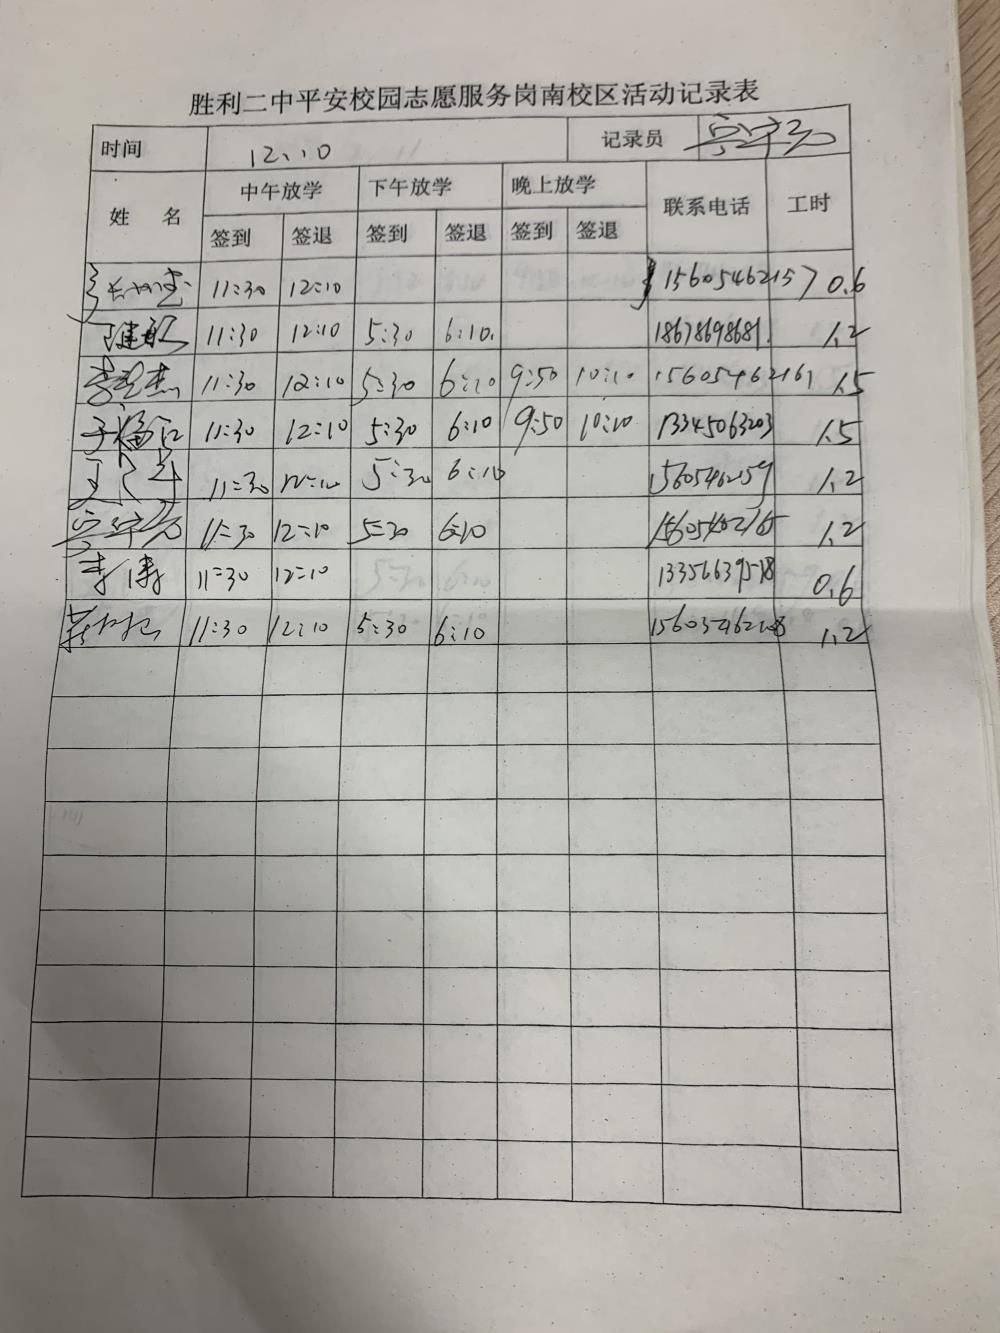 胜利二中平安校园志愿服务岗南校区活动记录表
时间 12.10 记录员
姓 名 中午放学 下午放学 晚上放学 联系电话 工时
签到 签退 签到 签退 签到 签退
11:30 12:10 15605462157 0.6
11:30 12:10 5:30 6:10. 18678698681. 1.2
11:30 12:10 5:30 6:10 9:50 10:10 15605462161 1.5
于福江 11:30 12:10 5:30 6:10 9:50 10:10 13345063203 1.5
11:30 12:10 5:30 6:10 1.2
11:30 12:10 5:30 6:10 1.2
李涛 11:30 12:10 13356639578 0.6
11:30 12:10 5:30 6:10 1.2